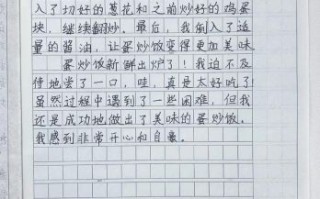 入了切好的葱花和之前炒好的鸡蛋
块，继续翻炒。最后，我倒入了适
量的酱油，让蛋炒饭变得更加美味。
蛋炒饭新鲜出炉了！我迫不及
待地尝了一口，哇，真是太好吃了！
虽然过程中遇到了一些困难，但我
还是成功地做出了美味的蛋炒饭。
我感到非常开心和自豪。